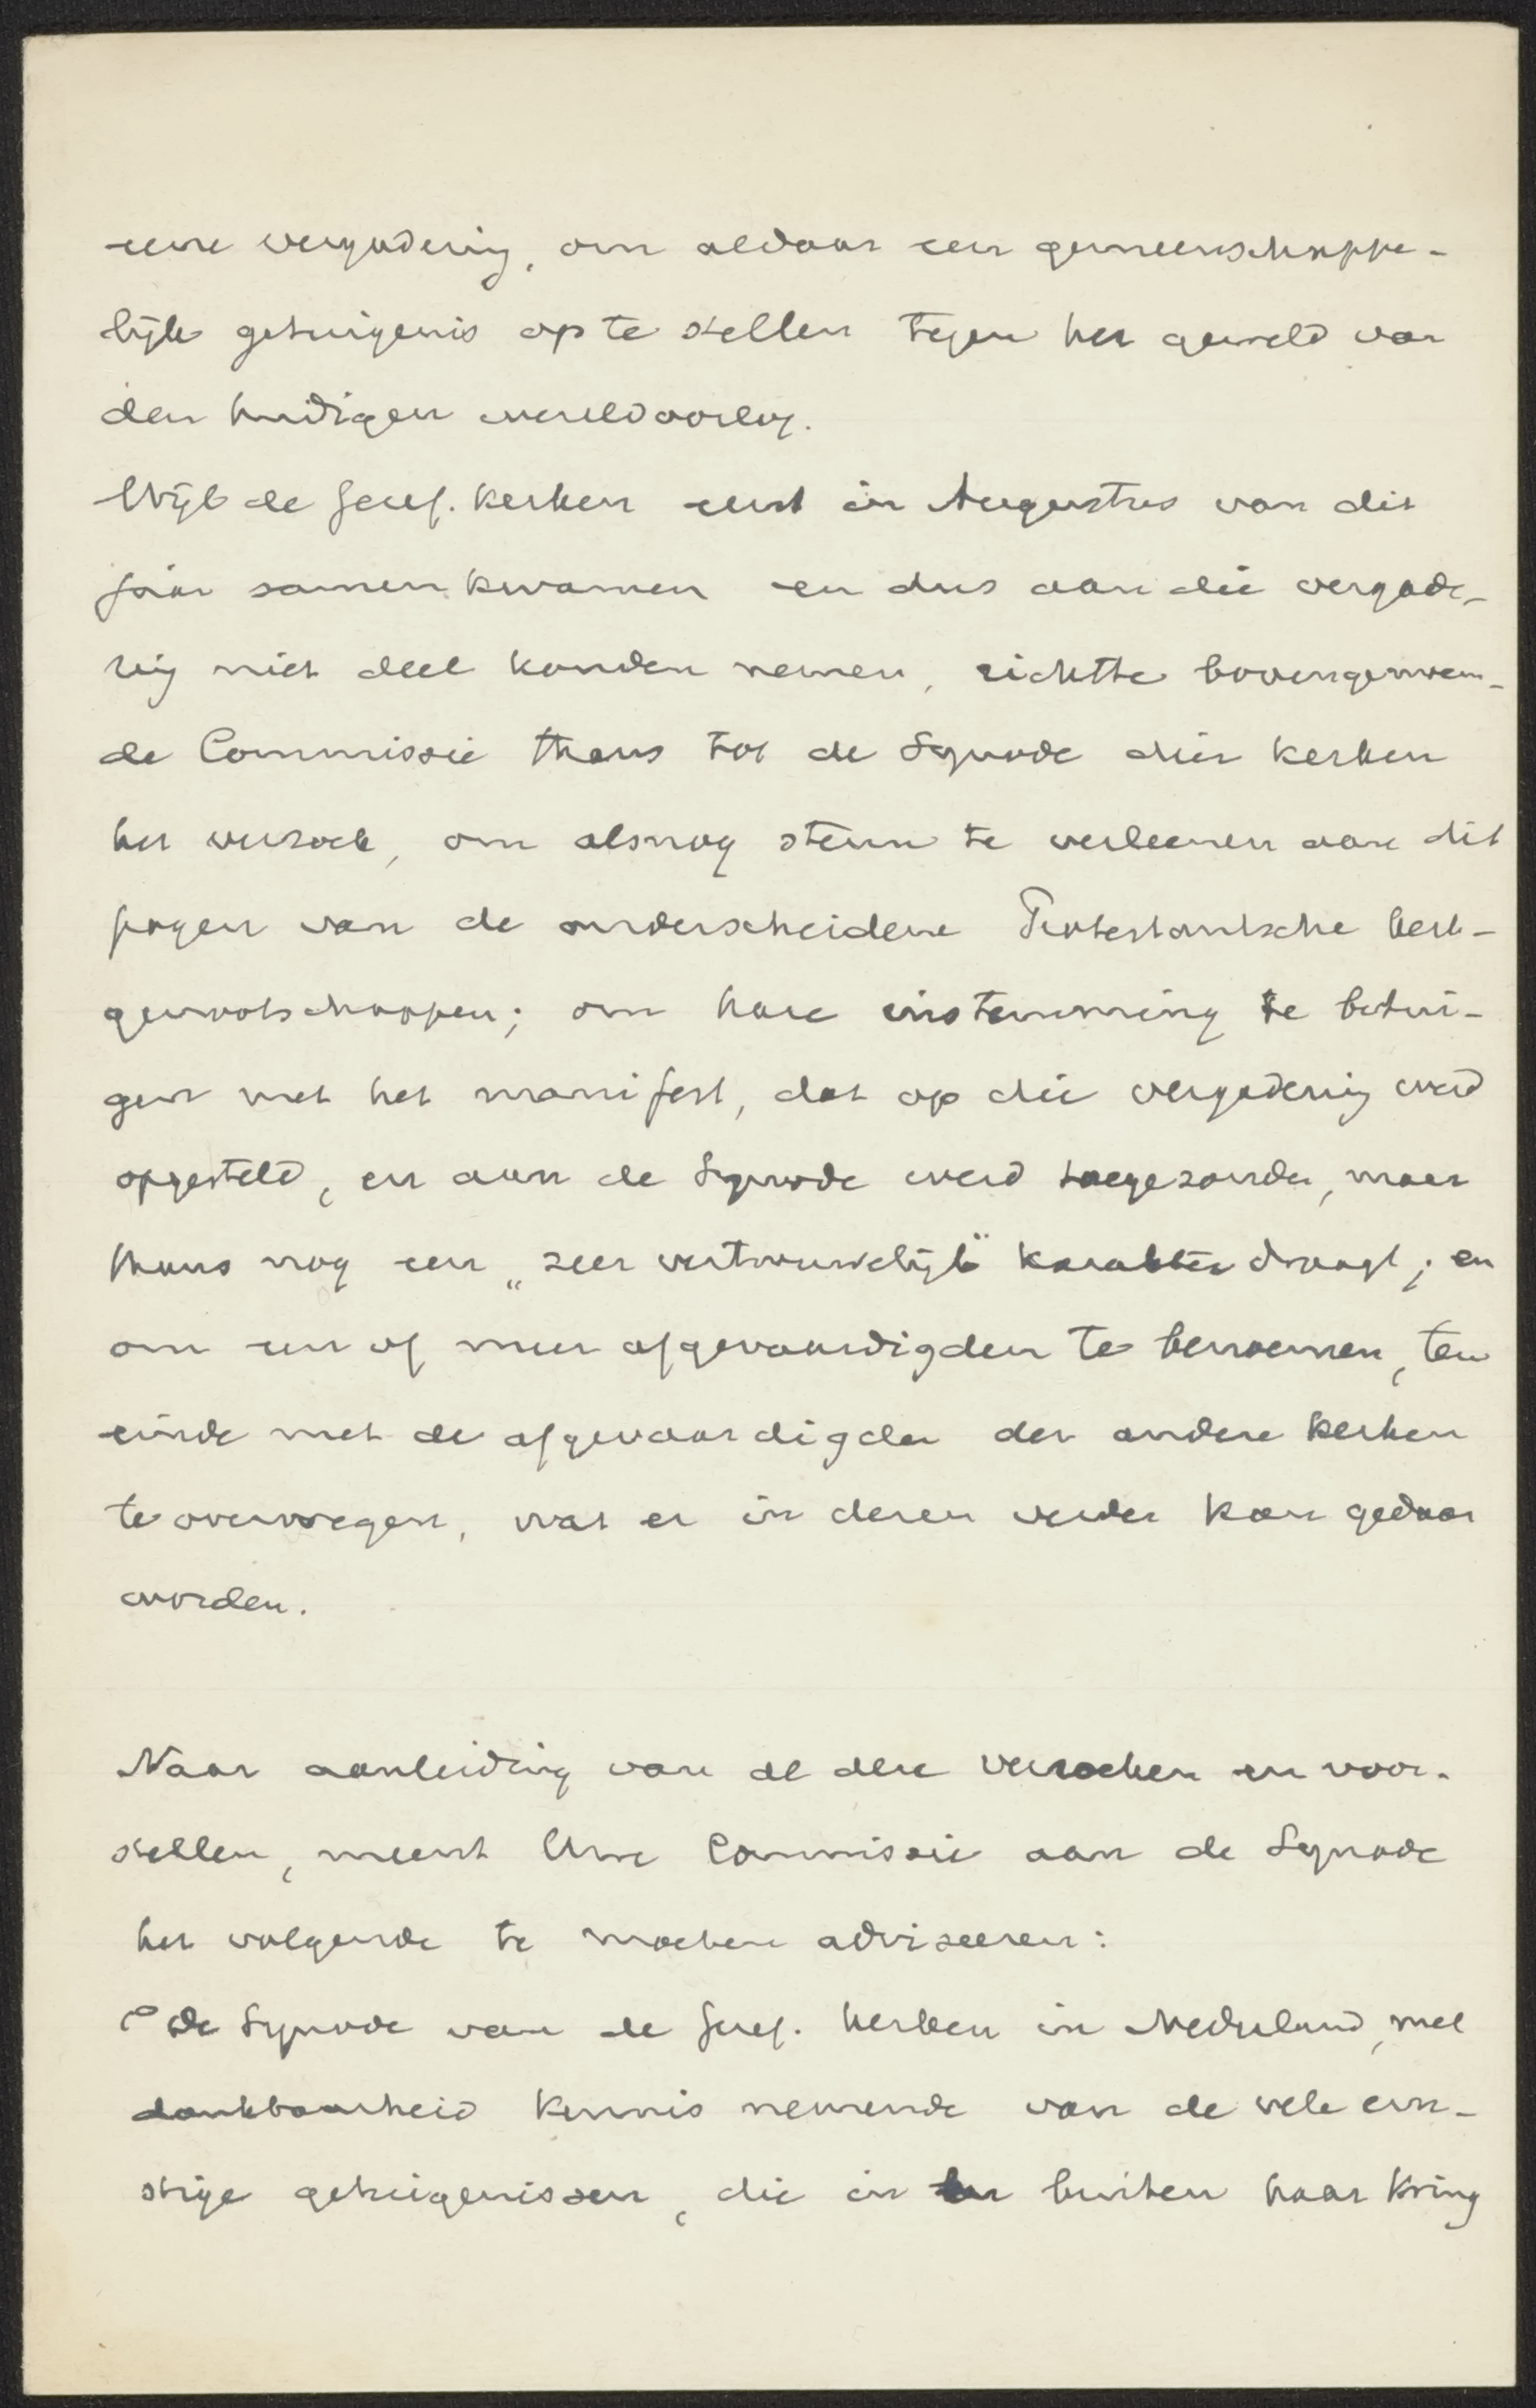 eene vergadering, om aldaar een gemeenschappe-
lijk getuigenis op te stellen tegen het geweld van
den huidigen wereldoorlog.
Wijl de Geref. Kerken eerst in Augustus van dit
jaar samenkwamen en dus aan die vergade-
ring niet deel konden nemen, richtte bovengenoem-
de Commissie thans tot de Synode dier Kerken
het verzoek, om alsnog steun te verleenen aan dit
pogen van de onderscheidene Protestantsche kerk-
genootschappen; om hare instemming te betui-
gen met het manifest, dat op die vergadering werd
opgesteld, en aan de Synode werd toegezonden, maar
thans nog een „zeer vertrouwelijk" karakter draagt; en
om een of meer afgevaardigden te benoemen, ten
einde met de afgevaardigden der andere Kerken
te overwegen, wat er in dezen verder kan gedaan
worden.
Naar aanleiding van al deze verzoeken en voor-
stellen, meent Uwe Commissie aan de Synode
het volgende te moeten adviseeren:
de Synode van de Geref. Kerken in Nederland, met
dankbaarheid kennis nemende van de vele ern-
stige getuigenissen, die in en buiten haar kring